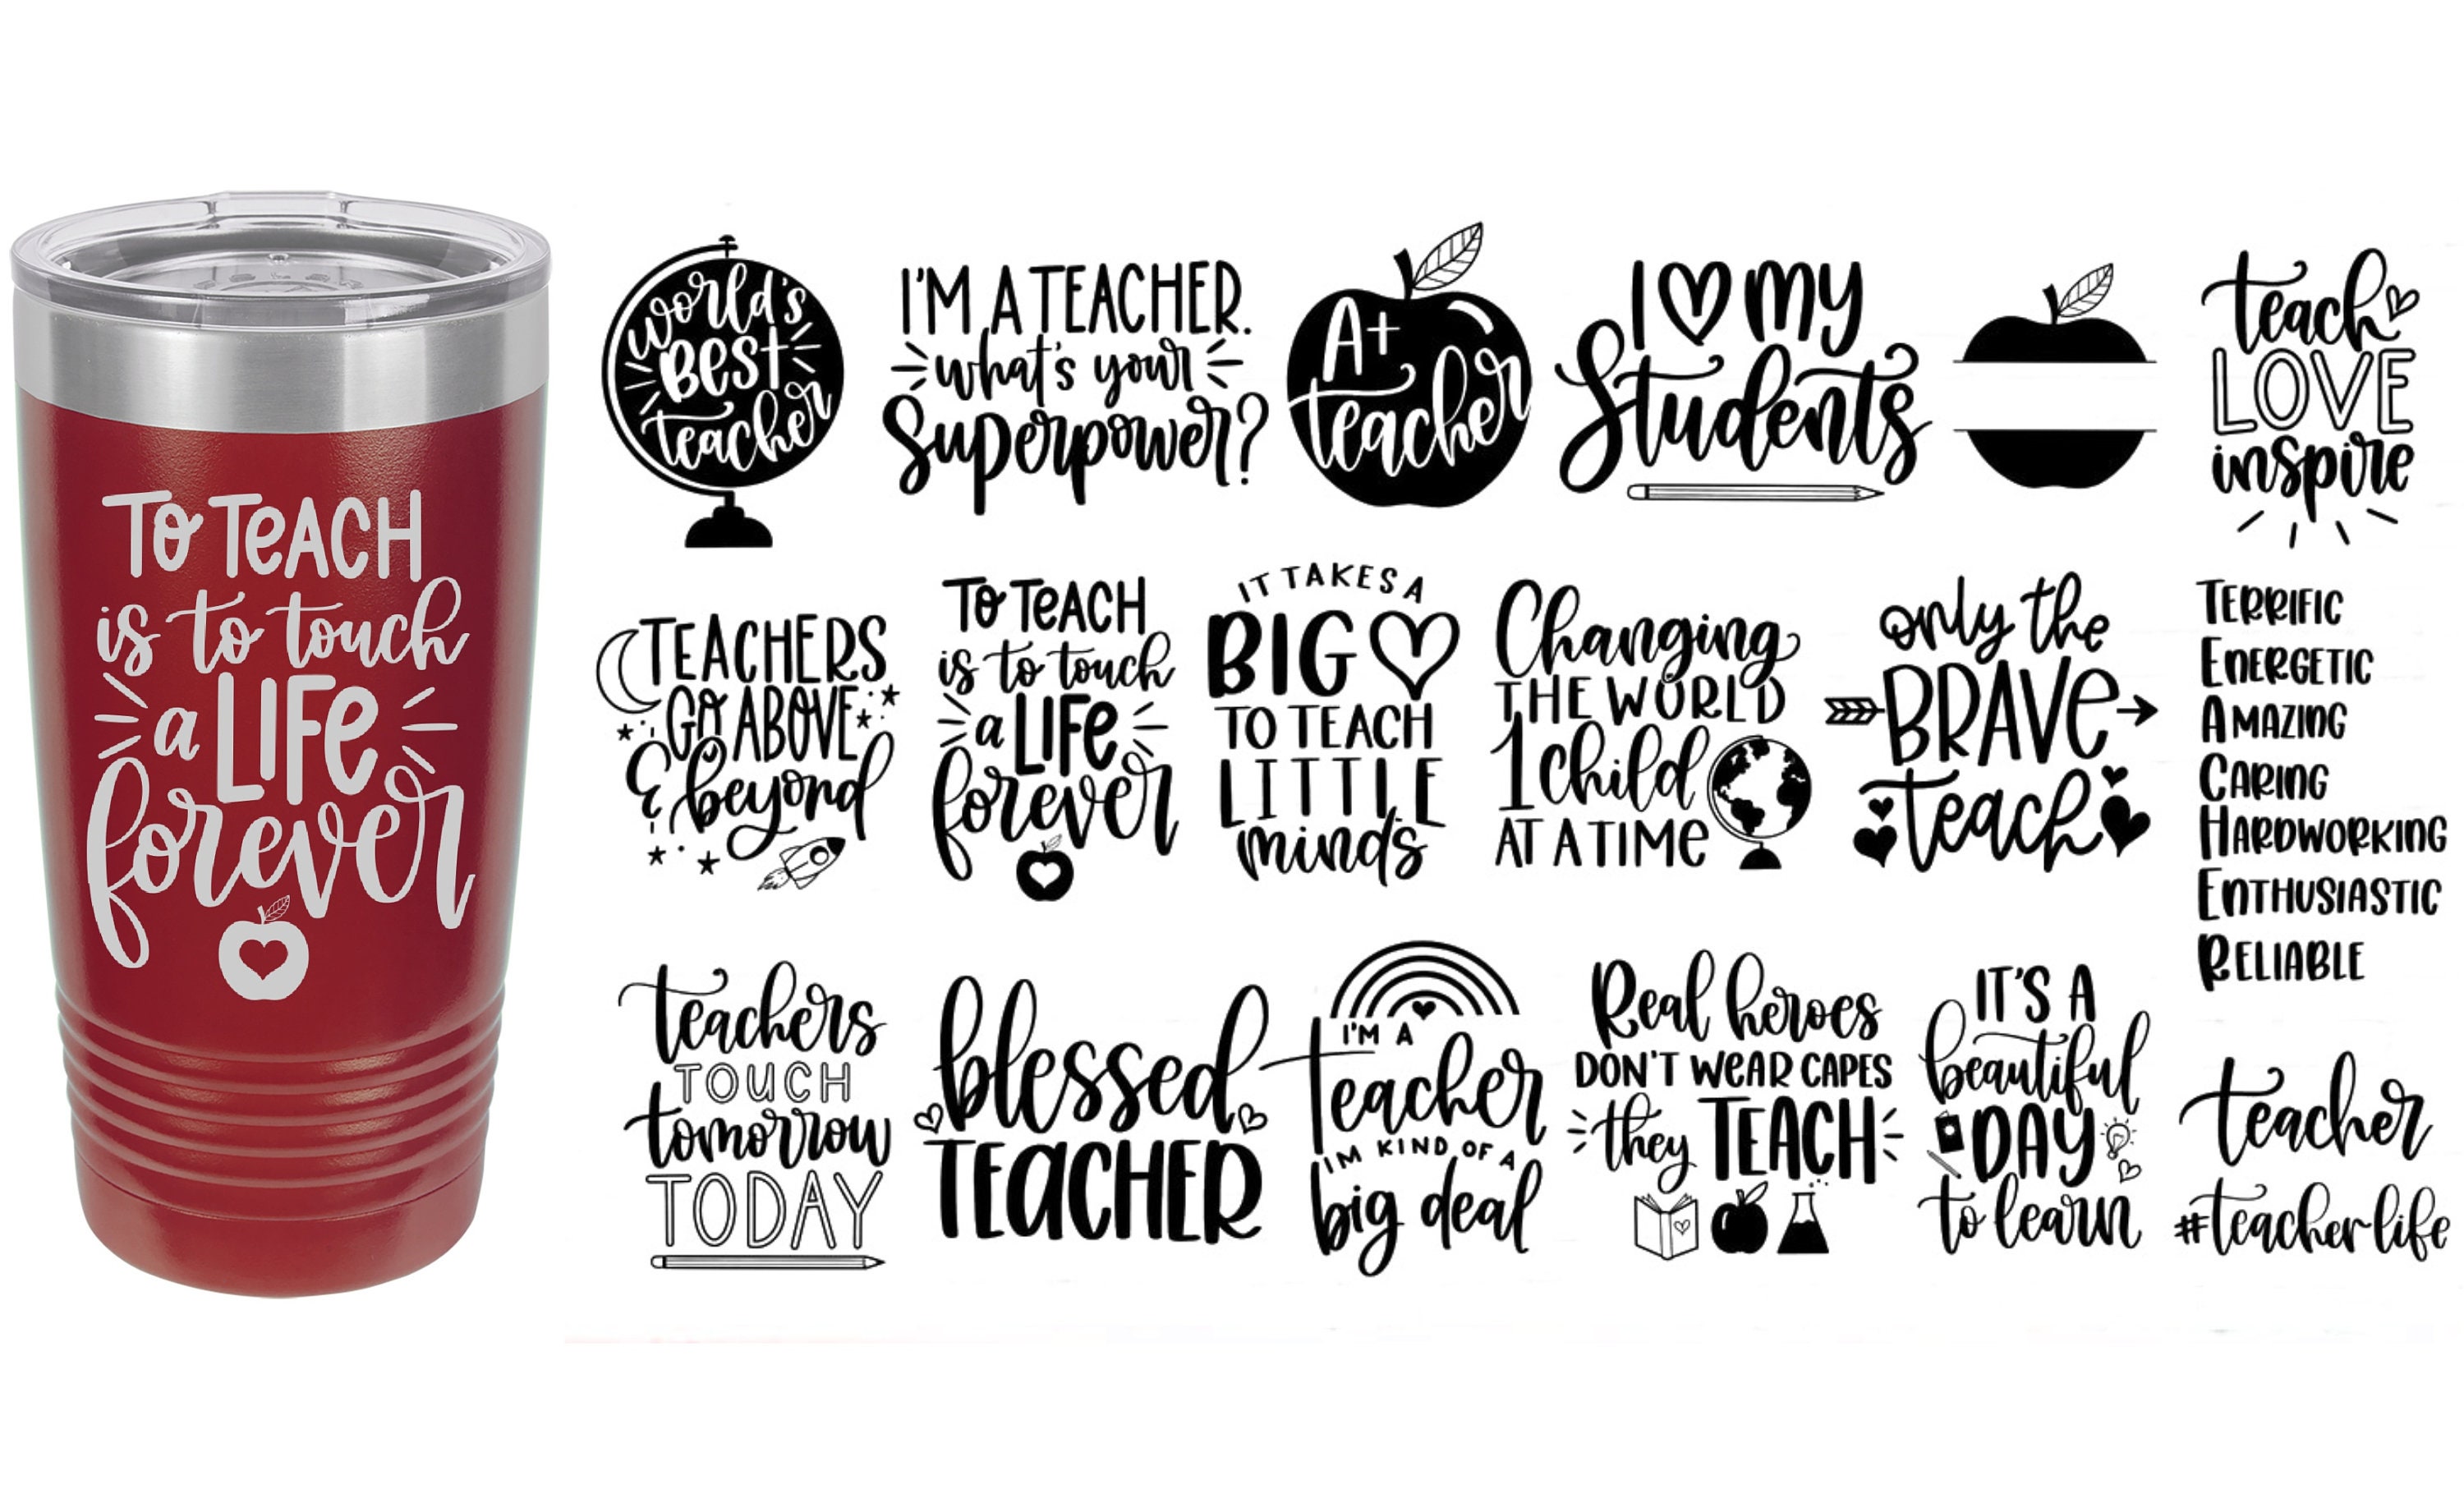 TO TeACH
is to touch
a LIFe
forever
world's
BEST
teacher
I'M A TEACHER.
what's your
Superpower?
A+
teacher
I MY
Students
teach
LOVE
inspire
TEACHERS
GO ABOVE
& beyond
TO TeACH
is to touch
a LIFe
forever
IT TAKES A
BIG
TO TEACH
LITTLE
minds
Changing
THE WORLD
1 child
AT A TIMe
only the
BRAVe
teach
TERRIFIC
ENERGETIC
AMAZING
CARING
HARDWORKING
ENTHUSIASTIC
RELIABLE
teachers
TOUCH
tomorrow
TODAY
blessed
TEaCHER
I'M A
teacher
I'M KIND OF A
big deal
Real heroes
DON'T WeAR CAPES
they TEACH
IT'S A
beautiful
DAY
to learn
teacher
#teacherlife